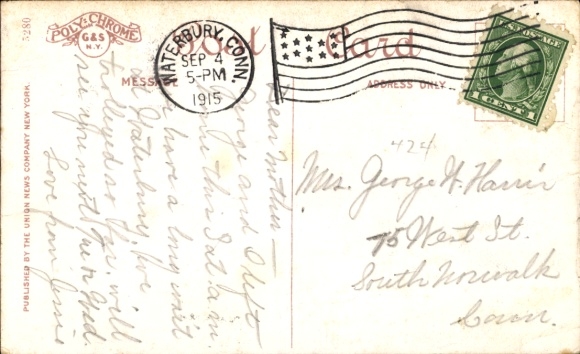 5280
POLY-CHROME
G&S
N.Y.
Post Card
WATERBURY, CONN.
SEP 4
5-PM
1915
U.S. POSTAGE
1 CENT 1
MESSAGE
ADDRESS ONLY
PUBLISHED BY THE UNION NEWS COMPANY NEW YORK.
Dear Mother—
George and I left
home this Sat. a.m.
have a long wait
at Waterbury, Ive
trolleyed so far. will
see you next Tue or Wed
Love from
424
Mrs. George H. Harris
75 West St.
South Norwalk
Conn.